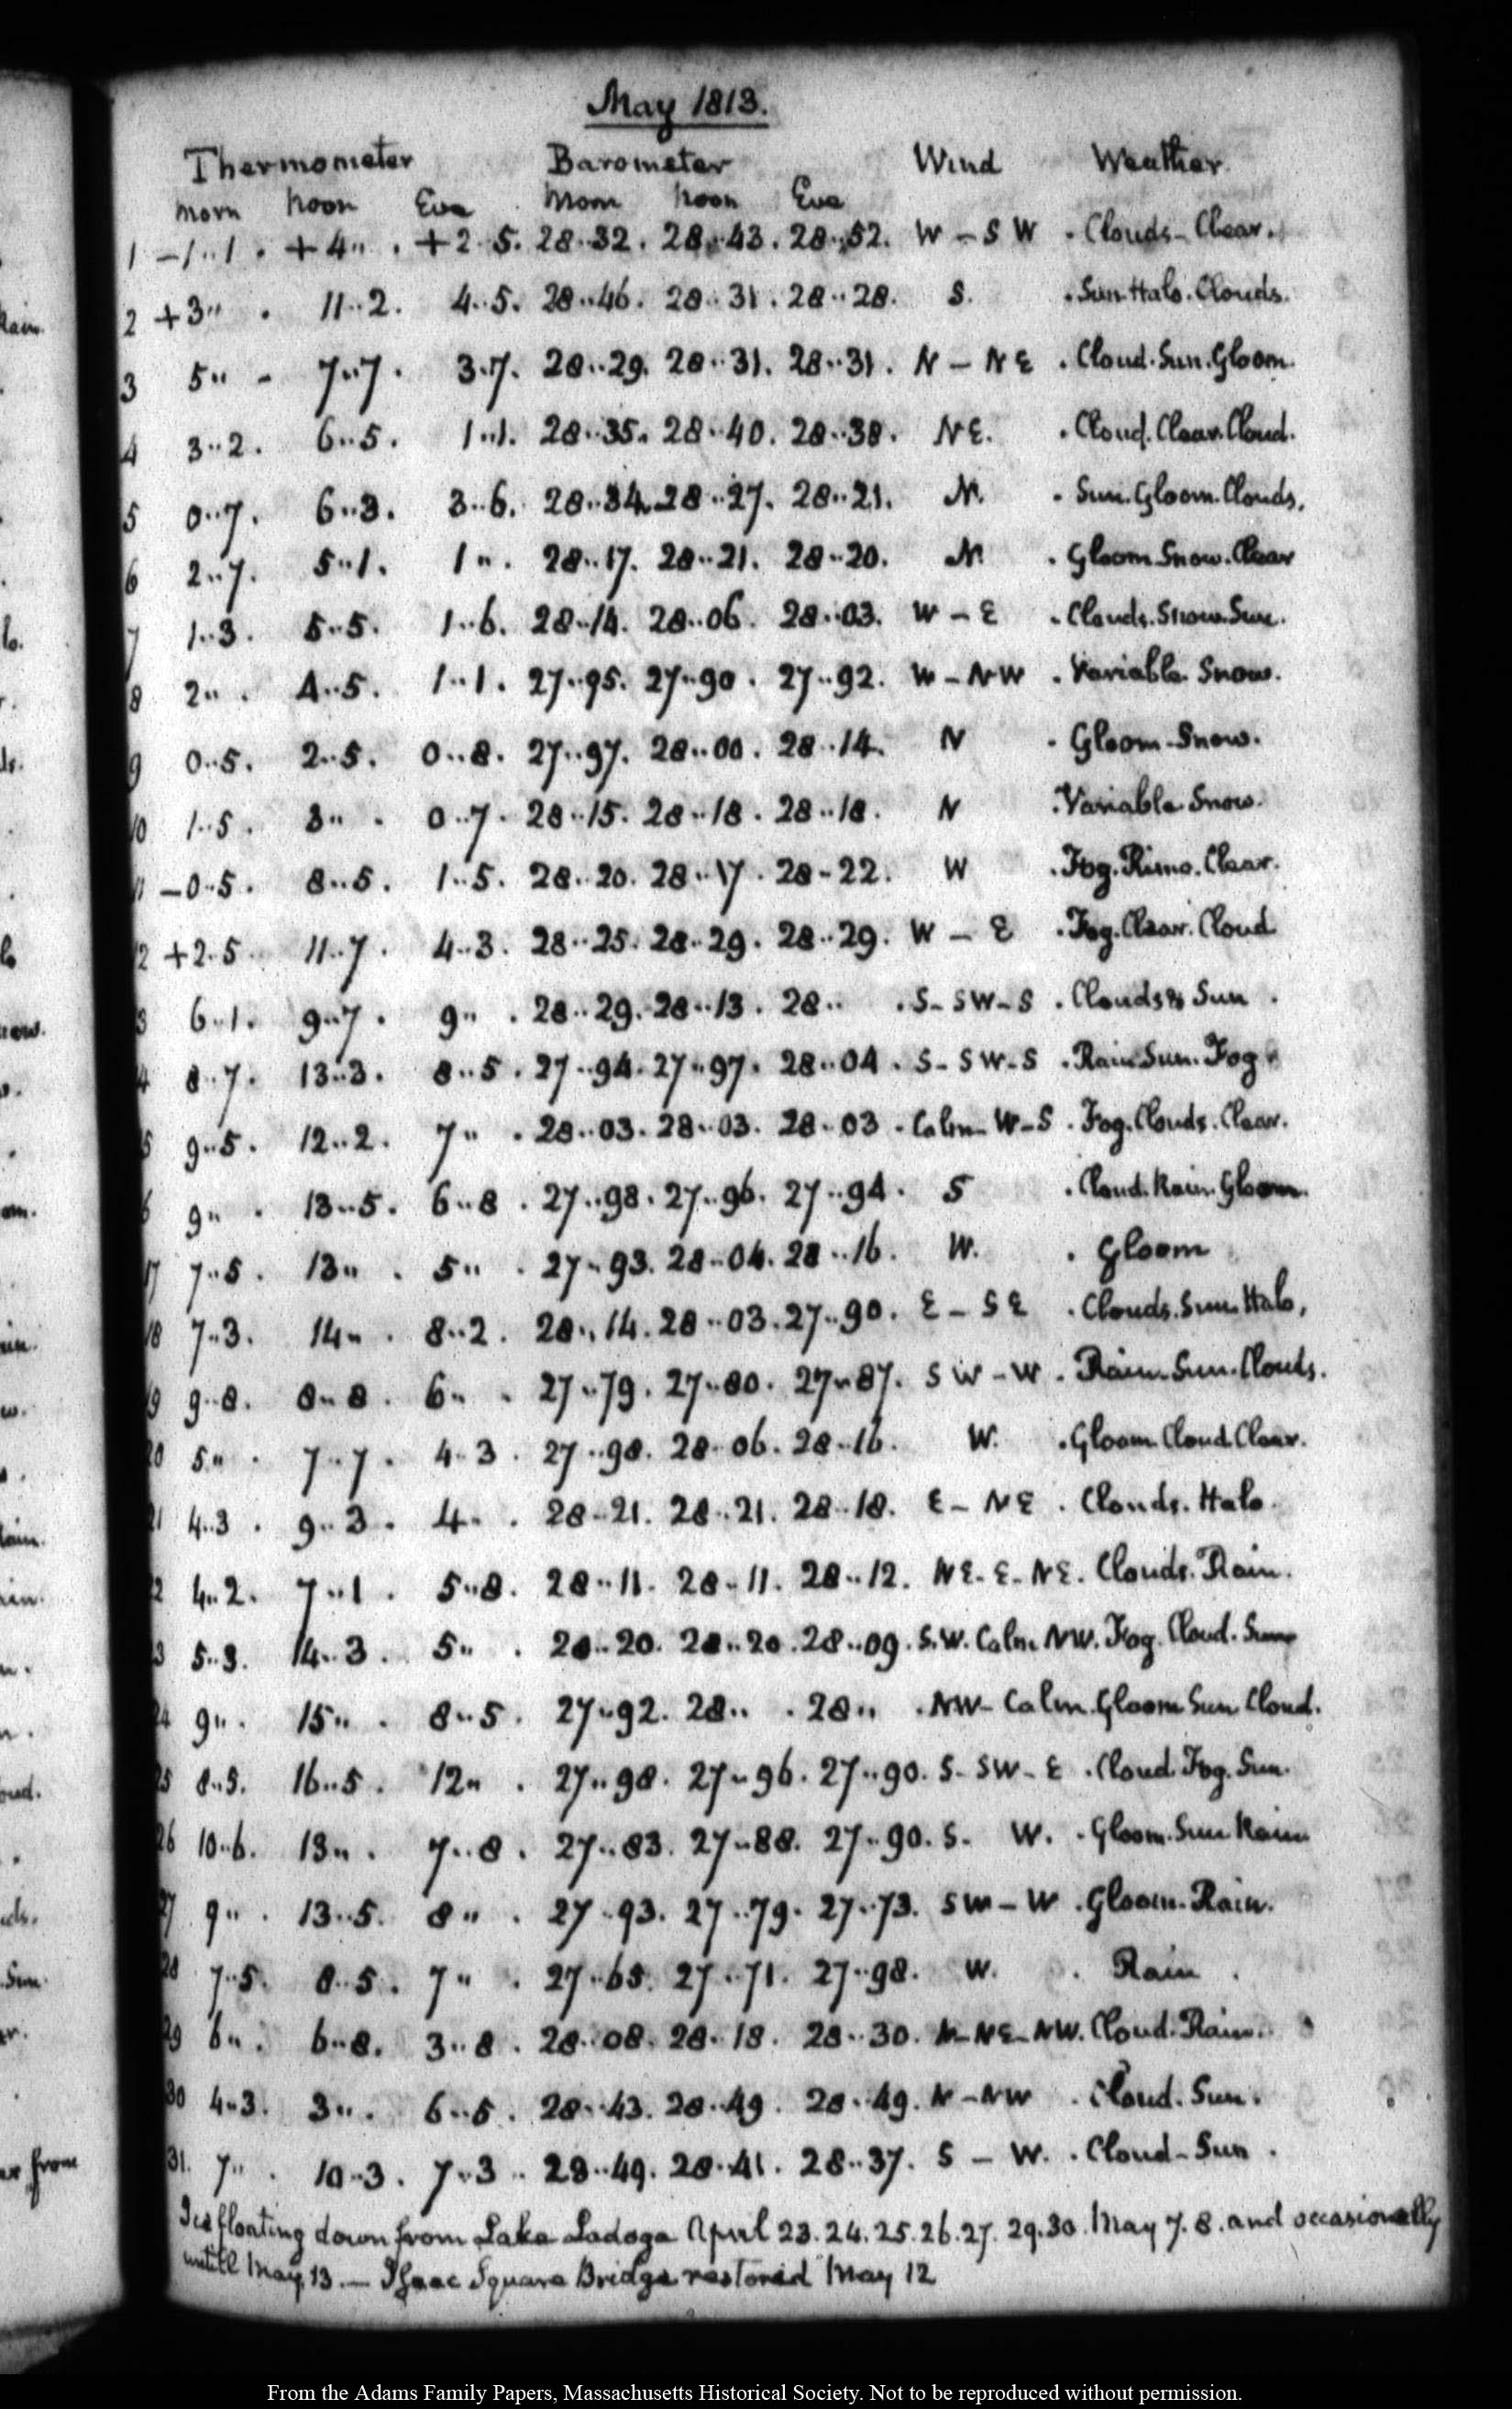 May 1813.
Thermometer Barometer Wind Weather.
Morn Noon Eve Morn Noon Eve
1 -1..1. +4.. . +2..5. 28..32. 28..43. 28..52. W - SW . Clouds - Clear.
2 +3.. . 11..2. 4..5. 28..46. 28..31. 28..28. S. . Sun. Halo. Clouds.
3 5.. - 7..7. 3..7. 28..29. 28..31. 28..31. N - NE . Cloud. Sun. Gloom.
4 3..2. 6..5. 1..1. 28..35. 28..40. 28..38. NE. . Cloud. Clear. Cloud.
5 0..7. 6..3. 3..6. 28..34. 28..27. 28..21. N. . Sun. Gloom. Clouds.
6 2..7. 5..1. 1.. . 28..17. 28..21. 28..20. N . Gloom. Snow. Clear
7 1..3. 5..5. 1..6. 28..14. 28..06. 28..03. W - E . Clouds. Snow. Sun.
8 2.. . 4..5. 1..1. 27..95. 27..90. 27..92. W - NW . Variable. Snow.
9 0..5. 2..5. 0..8. 27..97. 28..00. 28..14. N . Gloom - Snow.
10 1..5. 3.. . 0..7. 28..15. 28..18. 28..18. N . Variable. Snow.
11 -0..5. 8..5. 1..5. 28..20. 28..17. 28..22. W . Fog. Rime. Clear.
12 +2..5 11..7. 4..3. 28..25. 28..29. 28..29. W - E . Fog. Clear. Cloud
3 6..1. 9..7. 9.. . 28..29. 28..13. 28.. . S - SW - S . Clouds & Sun .
4 8..7. 13..3. 8..5. 27..94. 27..97. 28..04. S - SW - S . Rain Sun. Fog.
5 9..5. 12..2. 7.. . 28..03. 28..03. 28..03 . Calm - W - S . Fog. Clouds. Clear.
6 9.. . 13..5. 6..8. 27..98. 27..96. 27..94. S . Cloud. Rain. Gloom.
17 7..5. 13.. . 5.. . 27..93. 28..04. 28..16. W. . Gloom
18 7..3. 14.. . 8..2. 28..14. 28..03. 27..90. E - SE . Clouds. Sun. Halo,
19 9..8. 8..8. 6.. . 27..79. 27..80. 27..87. SW - W . Rain. Sun. Clouds.
20 5.. . 7..7. 4..3. 27..98. 28..06. 28..16. W. . Gloom. Cloud. Clear.
21 4..3. 9..3. 4.. . 28..21. 28..21. 28..18. E - NE . Clouds. Halo.
2 4..2. 7..1. 5..8. 28..11. 28..11. 28..12. NE - E - NE. Clouds. Rain.
3 5..3. 14..3. 5.. . 28..20. 28..20. 28..09. S.W. Calm NW. Fog. Cloud. Sun
24 9.. . 15.. . 8..5. 27..92. 28.. . 28.. . NW - Calm. Gloom Sun Cloud.
25 8..5. 16..5. 12.. . 27..98. 27..96. 27..90. S - SW - E . Cloud. Fog. Sun.
26 10..6. 13.. . 7..8. 27..83. 27..88. 27..90. S - W. . Gloom. Sun Rain
27 9.. . 13..5. 8.. . 27..93. 27..79. 27..73. SW - W . Gloom. Rain.
28 7..5. 8..5. 7.. . 27..65. 27..71. 27..98. W. . Rain .
29 6.. . 6..8. 3..8. 28..08. 28..18. 28..30. N - NE - NW. Cloud. Rain.
30 4..3. 3.. . 6..5. 28..43. 28..49. 28..49. N - NW . Cloud. Sun.
31. 7.. . 10..3. 7..3 . 28..49. 28..41. 28..37. S - W. . Cloud - Sun .
Ice floating down from Lake Ladoga April 23. 24. 25. 26. 27. 29. 30. May 7. 8. and occasionally
untill May 13. — Isaac Square Bridge restored May 12
From the Adams Family Papers, Massachusetts Historical Society. Not to be reproduced without permission.